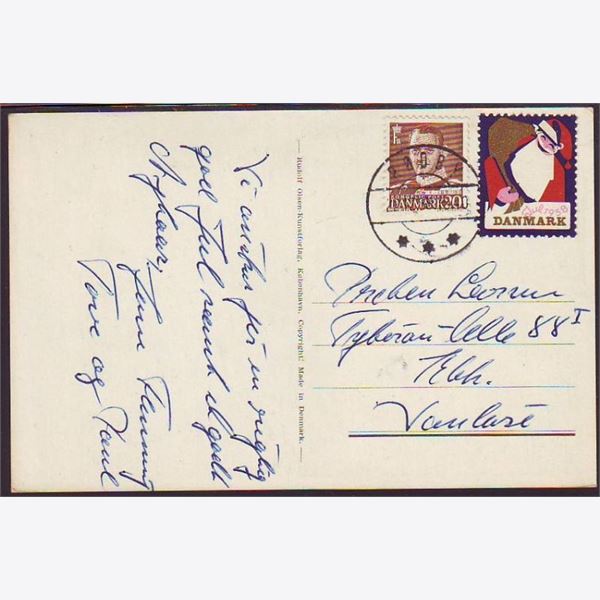 Vi ønsker jer en rigtig
god Jul samt et godt
Nytaar,
Flemming
Tove og Poul
— Rudolf Olsen-Kunstforlag, København. Copyright! Made in Denmark. —
DANMARK 20
Jul 1958
DANMARK
Preben
Tyborøn Alle 88 I
Kbh.
Vanløse